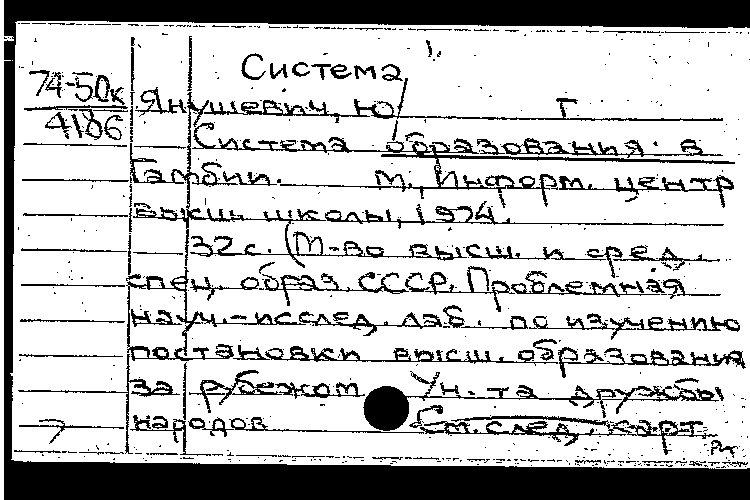 1.
Система
74-50к
4186
Янушевич, Ю Г
Система образования в
Гамбии. М., Информ. центр
высш. школы, 1974.
32 с. (М-во высш. и сред.
спец. образ. СССР. Проблемная
науч.-исслед. лаб. по изучению
постановки высш. образования
за рубежом Ун-та дружбы
народов
См. след. карт